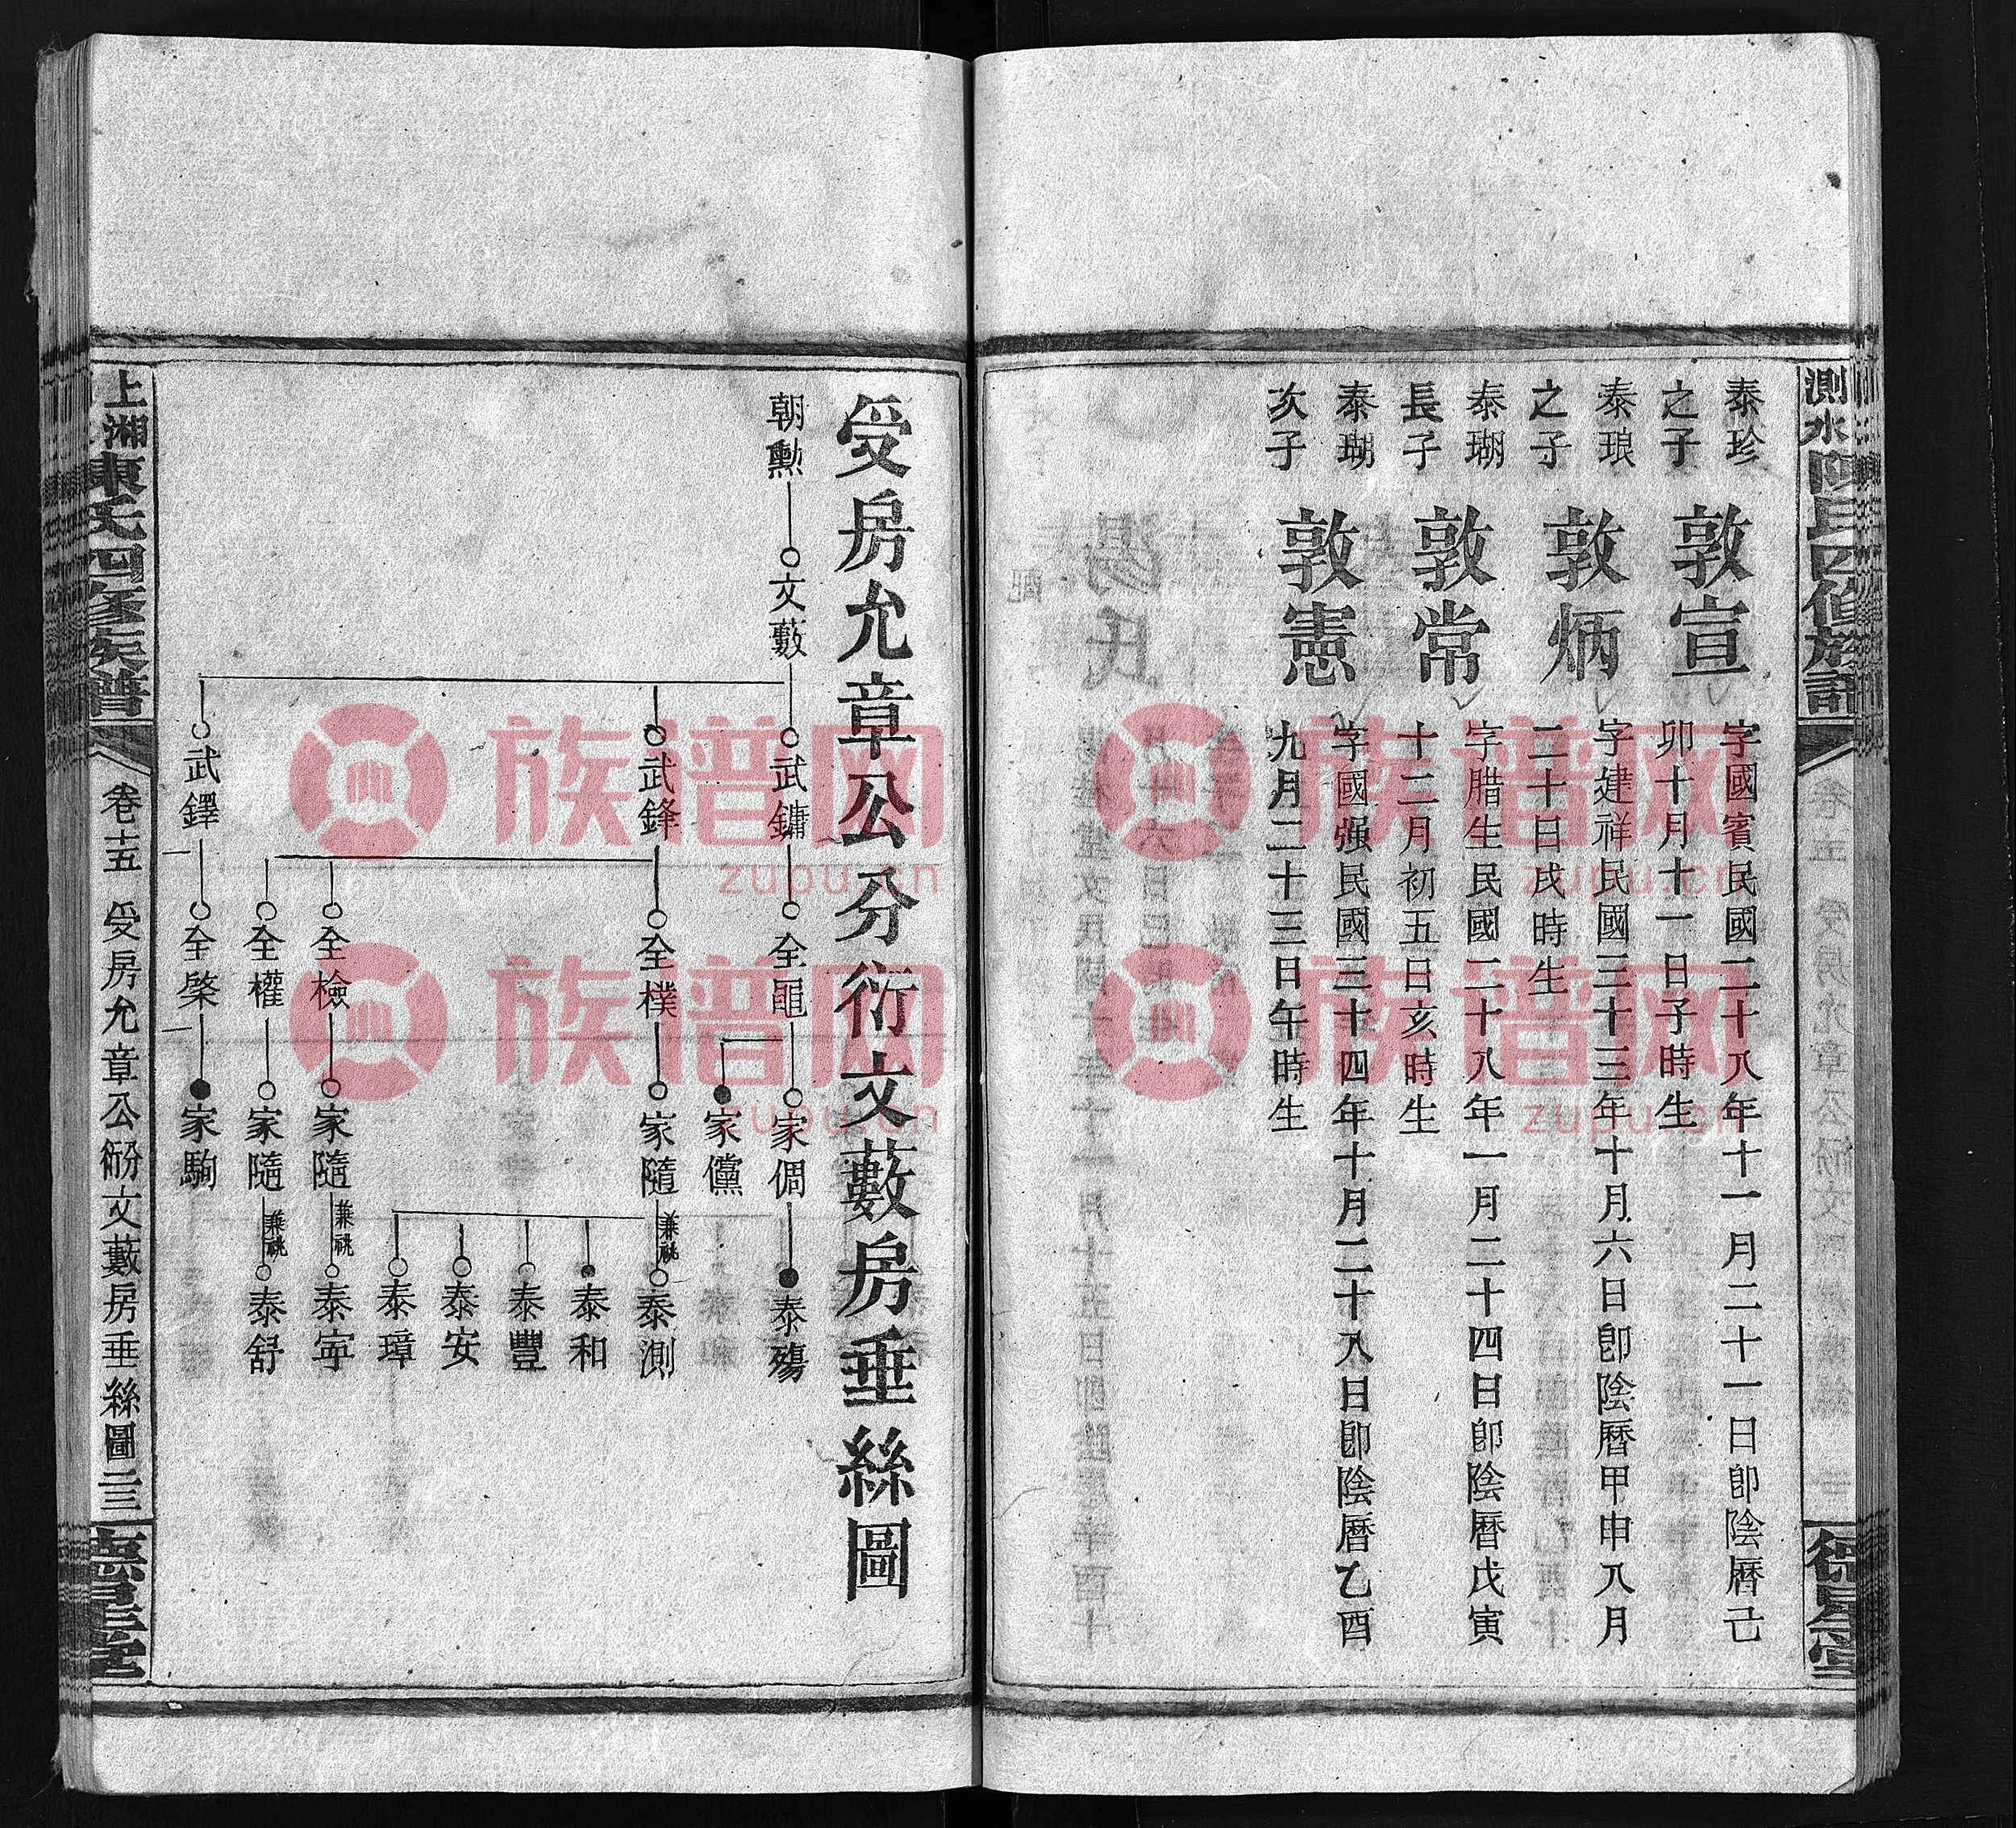 測水陳氏四修族譜
德星堂
泰珍之子
敦宣
字國賓民國二十八年十一月二十一日卽陰曆己
卯十月十一日子時生
泰琅之子
敦炳
字建祥民國三十三年十月六日卽陰曆甲申八月
二十日戌時生
泰瑚長子
敦常
字腊生民國二十八年一月二十四日卽陰曆戊寅
十二月初五日亥時生
泰瑚次子
敦憲
字國强民國三十四年十月二十八日卽陰曆乙酉
九月二十三日午時生
受房允章公分衍文藪房垂絲圖
朝勲
文藪
武鏞
武鋒
武鐸
全黽
全樸
全檢
全權
全棨
家倜
家儻
家隨
兼祧
家隨
兼祧
家隨
兼祧
家駒
泰殤
泰測
泰和
泰豐
泰安
泰璋
泰寜
泰舒
上湘陳氏四修族譜
卷十五
受房允章公分衍文藪房垂絲圖
二三
德星堂
族谱网
zupu.cn
族谱网
zupu.cn
族谱网
zupu.cn
族谱网
zupu.cn